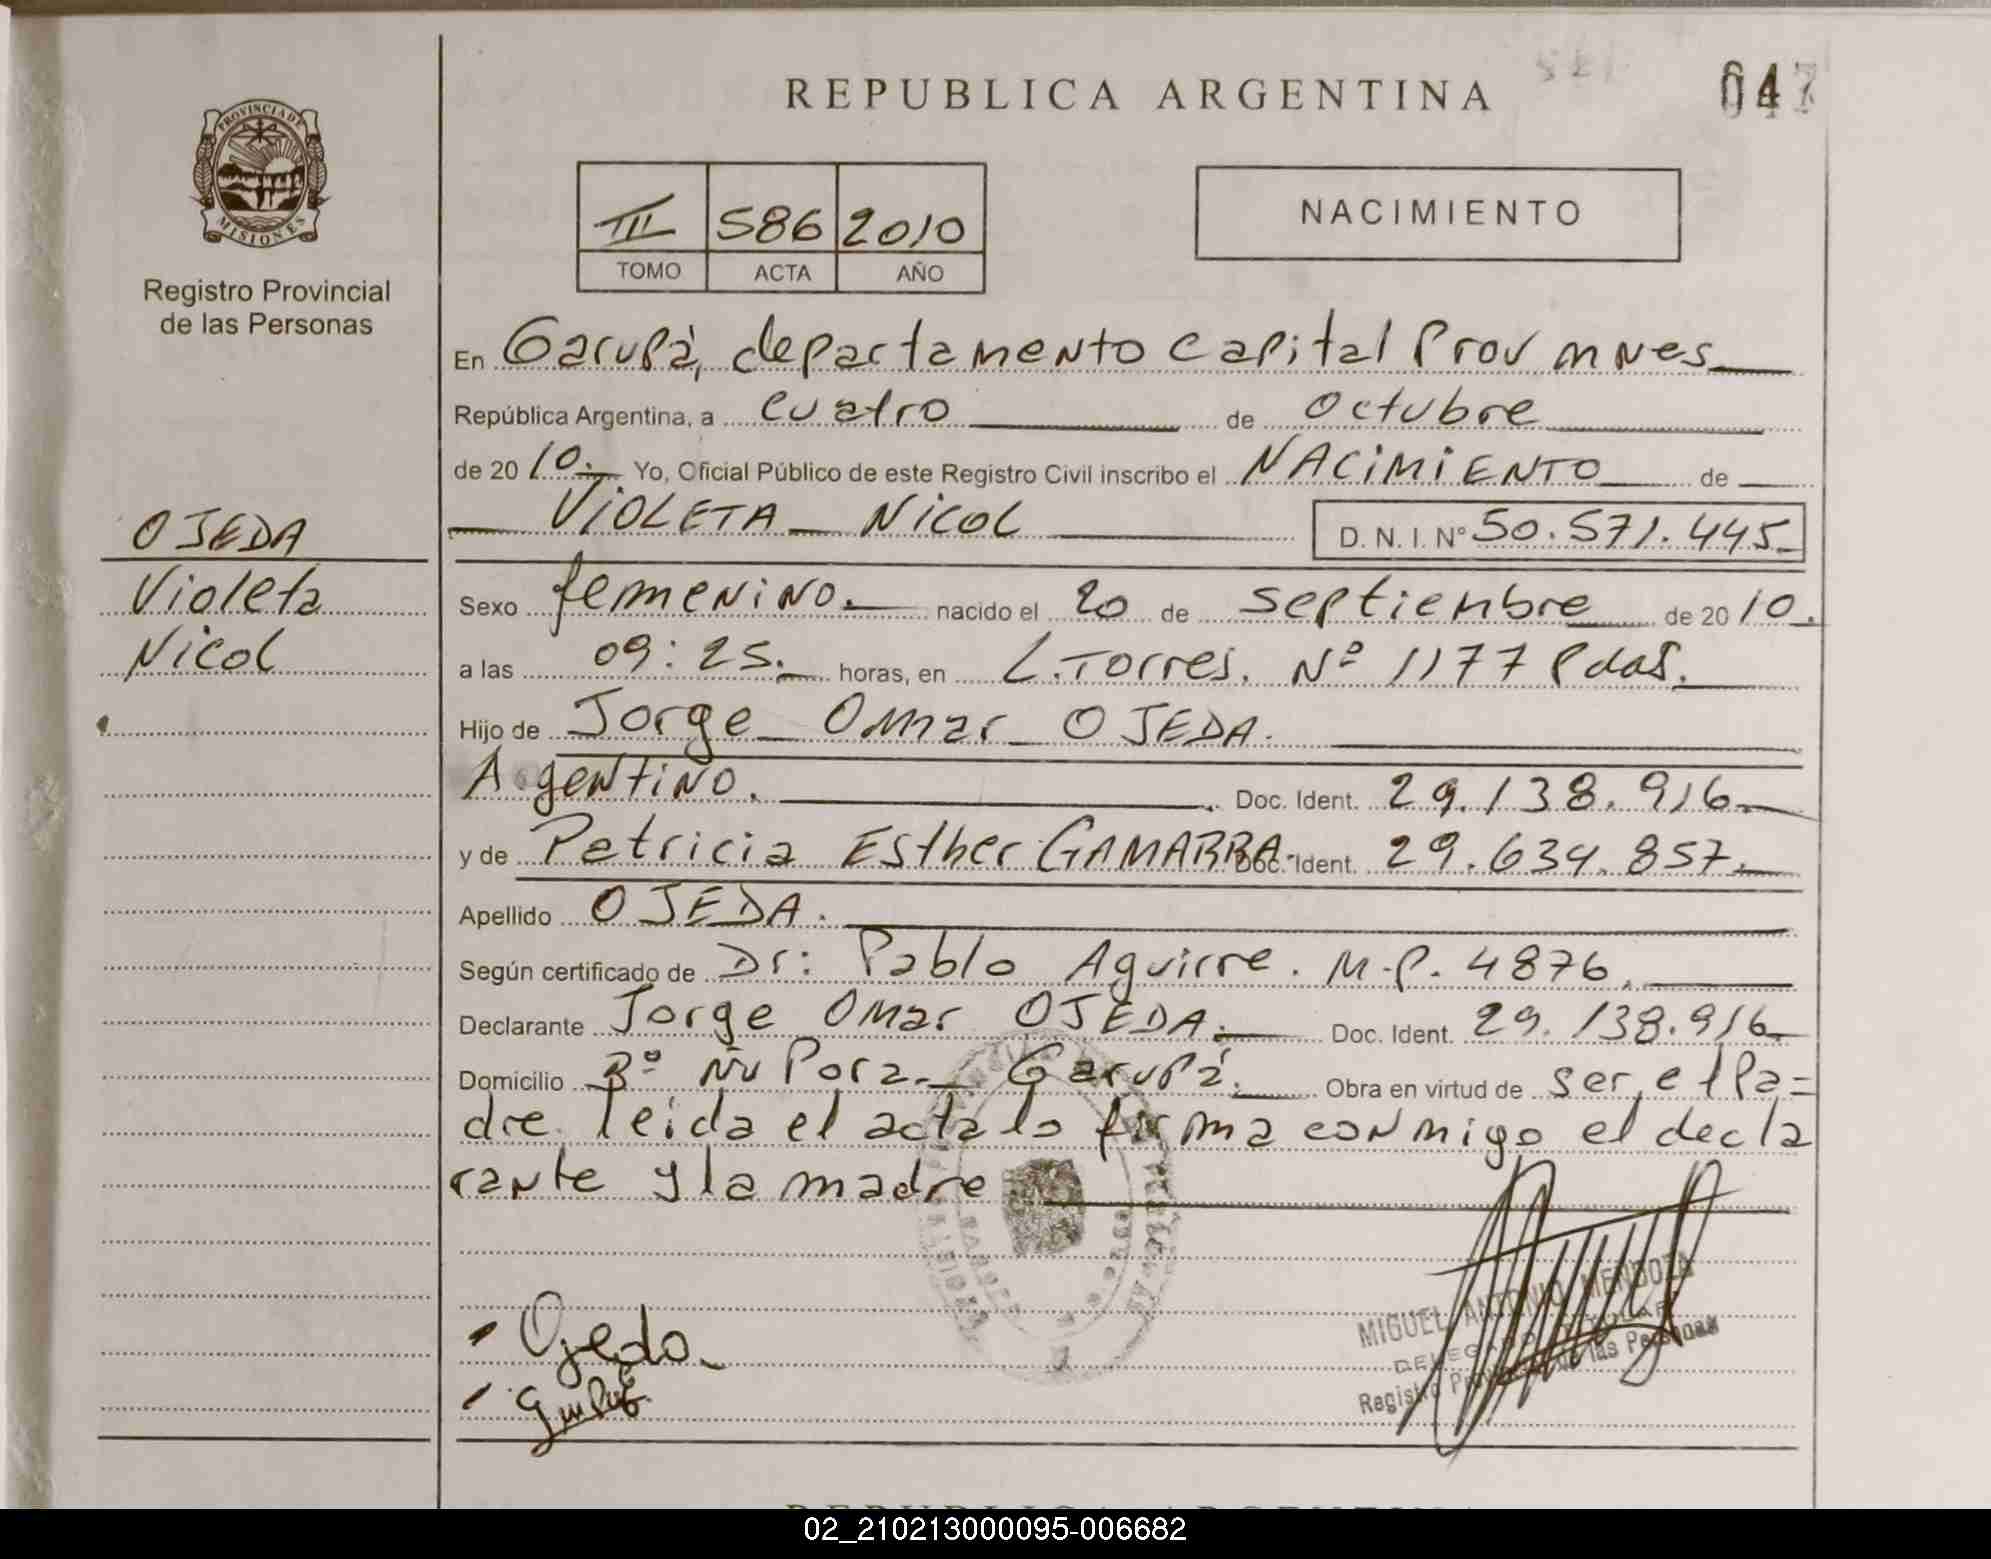 REPUBLICA ARGENTINA
647
PROVINCIA DE
MISIONES
Registro Provincial
de las Personas
III 586 2010
TOMO ACTA AÑO
NACIMIENTO
En Garupá, departamento Capital Prov mnes
República Argentina, a cuatro de octubre
de 2010. Yo, Oficial Público de este Registro Civil inscribo el NACIMIENTO de
VIOLETA NICOL D. N. I. Nº 50.571.445
OJEDA
Violeta
Nicol
Sexo femenino. nacido el 20 de septiembre de 2010.
a las 09:25. horas, en L. Torres. Nº 1177 Pdas.
Hijo de Jorge Omar OJEDA.
Agentino. Doc. Ident. 29.138.916
y de Patricia Esther GAMARRA. Doc. Ident. 29.634.857.
Apellido OJEDA.
Según certificado de Dr: Pablo Aguirre. M.P. 4876.
Declarante Jorge Omar OJEDA. Doc. Ident. 29.138.916
Domicilio Bº Ñu Pora. Garupá. Obra en virtud de ser el Pa=
dre leida el acta lo firma conmigo el decla
rante y la madre
Ojeda
MIGUEL ANTONIO MENDOZA
DELEGADO TITULAR
Registro Provincial de las Personas
REPUBLICA ARGENTINA
02_210213000095-006682